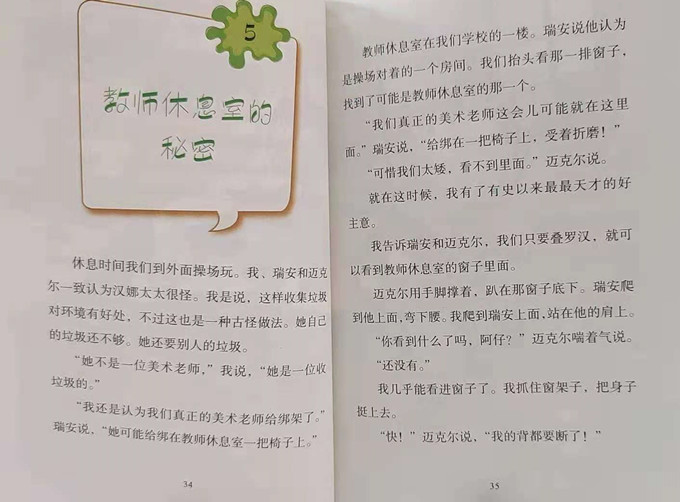 5
教师休息室的
秘密
休息时间我们到外面操场玩。我、瑞安和迈克
尔一致认为汉娜太太很怪。我是说，这样收集垃圾
对环境有好处，不过这也是一种古怪做法。她自己
的垃圾还不够。她还要别人的垃圾。
“她不是一位美术老师，”我说，“她是一位收
垃圾的。”
“我还是认为我们真正的美术老师给绑架了。”
瑞安说，“她可能给绑在教师休息室一把椅子上。”
34
教师休息室在我们学校的一楼。瑞安说他认为
是操场对着的一个房间。我们抬头看那一排窗子，
找到了可能是教师休息室的那一个。
“我们真正的美术老师这会儿可能就在这里
面。”瑞安说，“给绑在一把椅子上，受着折磨！”
“可惜我们太矮，看不到里面。”迈克尔说。
就在这时候，我有了有史以来最最天才的好
主意。
我告诉瑞安和迈克尔，我们只要叠罗汉，就可
以看到教师休息室的窗子里面。
迈克尔用手脚撑着，趴在那窗子底下。瑞安爬
到他上面，弯下腰。我爬到瑞安上面，站在他的肩上。
“你看到什么了吗，阿仔？”迈克尔喘着气说。
“还没有。”
我几乎能看进窗子了。我抓住窗架子，把身子
挺上去。
“快！”迈克尔说，“我的背都要断了！”
35